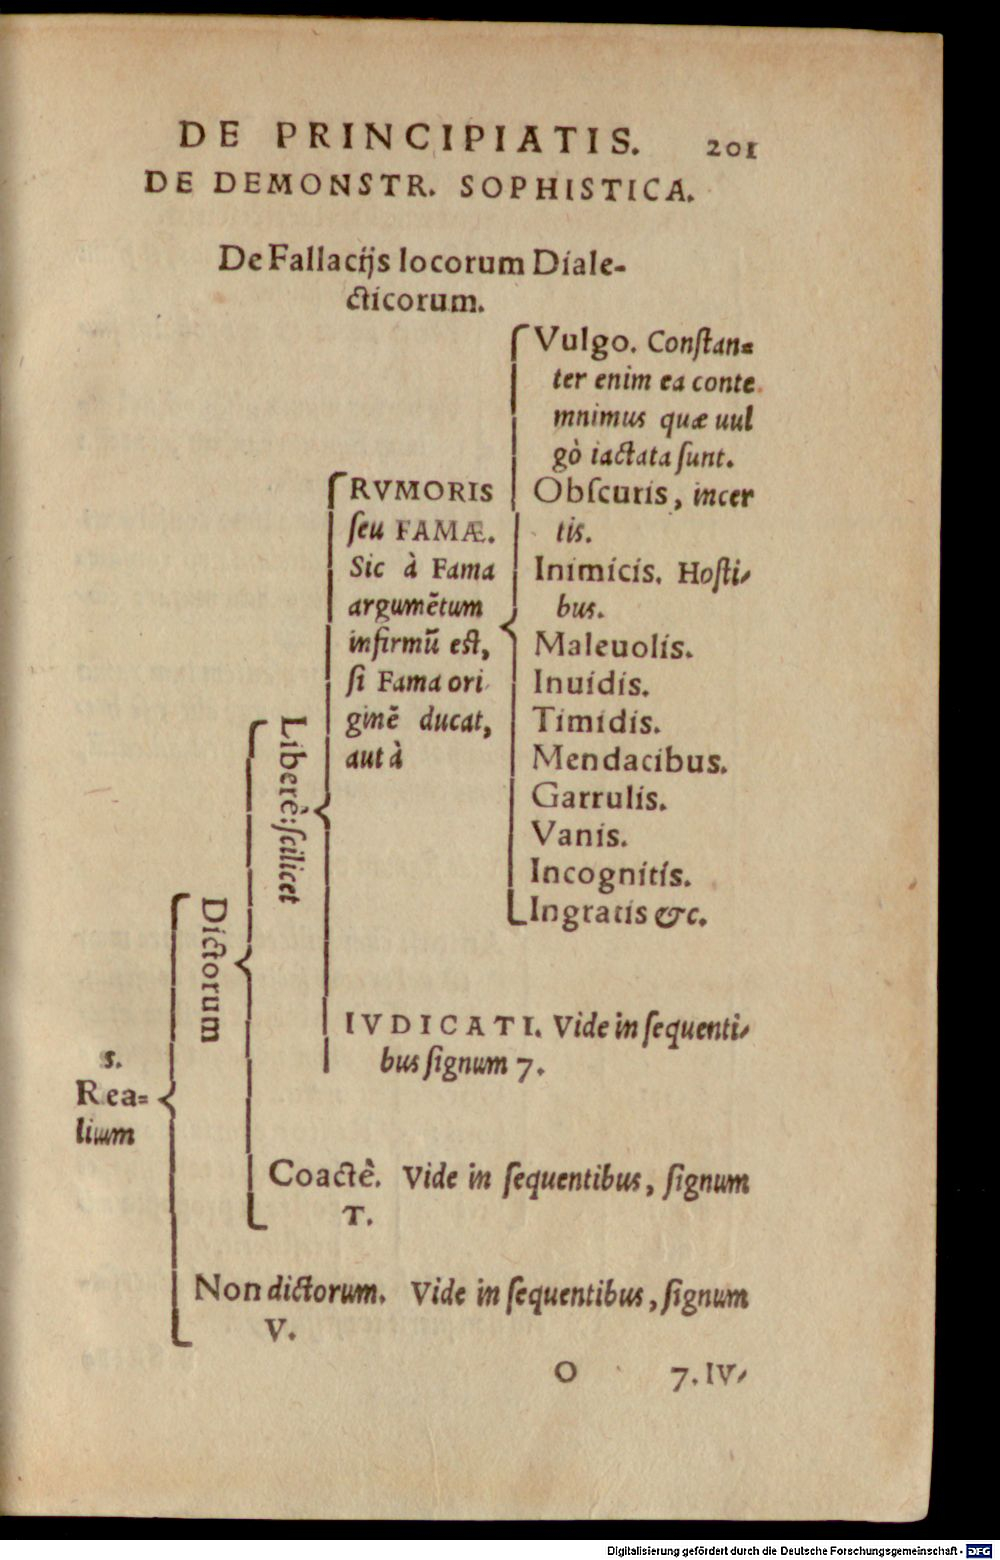 DE PRINCIPIATIS. 201
DE DEMONSTR. SOPHISTICA.
De Fallacijs locorum Diale-
cticorum.
s.
Rea=
lium
Dictorum
Liberè: ſcilicet
RVMORIS
ſeu FAMÆ.
Sic à Fama
argumẽtum
infirmũ eſt,
ſi Fama ori
ginẽ ducat,
aut à
Vulgo. Conſtan=
ter enim ea conte
mnimus quæ uul
gò iactata ſunt.
Obſcuris, incer
tis.
Inimicis. Hoſti-
bus.
Maleuolis.
Inuidis.
Timidis.
Mendacibus.
Garrulis.
Vanis.
Incognitis.
Ingratis &c.
IVDICATI. Vide in ſequenti-
bus ſignum 7.
Coactè. Vide in ſequentibus, ſignum
T.
Non dictorum. Vide in ſequentibus, ſignum
V.
O 7. IV-
Digitalisierung gefördert durch die Deutsche Forschungsgemeinschaft - DFG